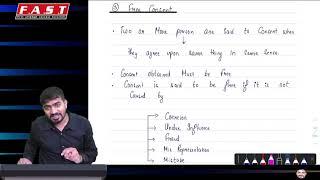 FAST
Free Consent
• Two or More person are said to Consent when
they agree upon same thing in same sense.
• Consent obtained Must be Free
• Consent is said to be free if it is not
Caused by
→ Coercion
→ Undue Influence
→ Fraud
→ Mis Representation
→ Mistake